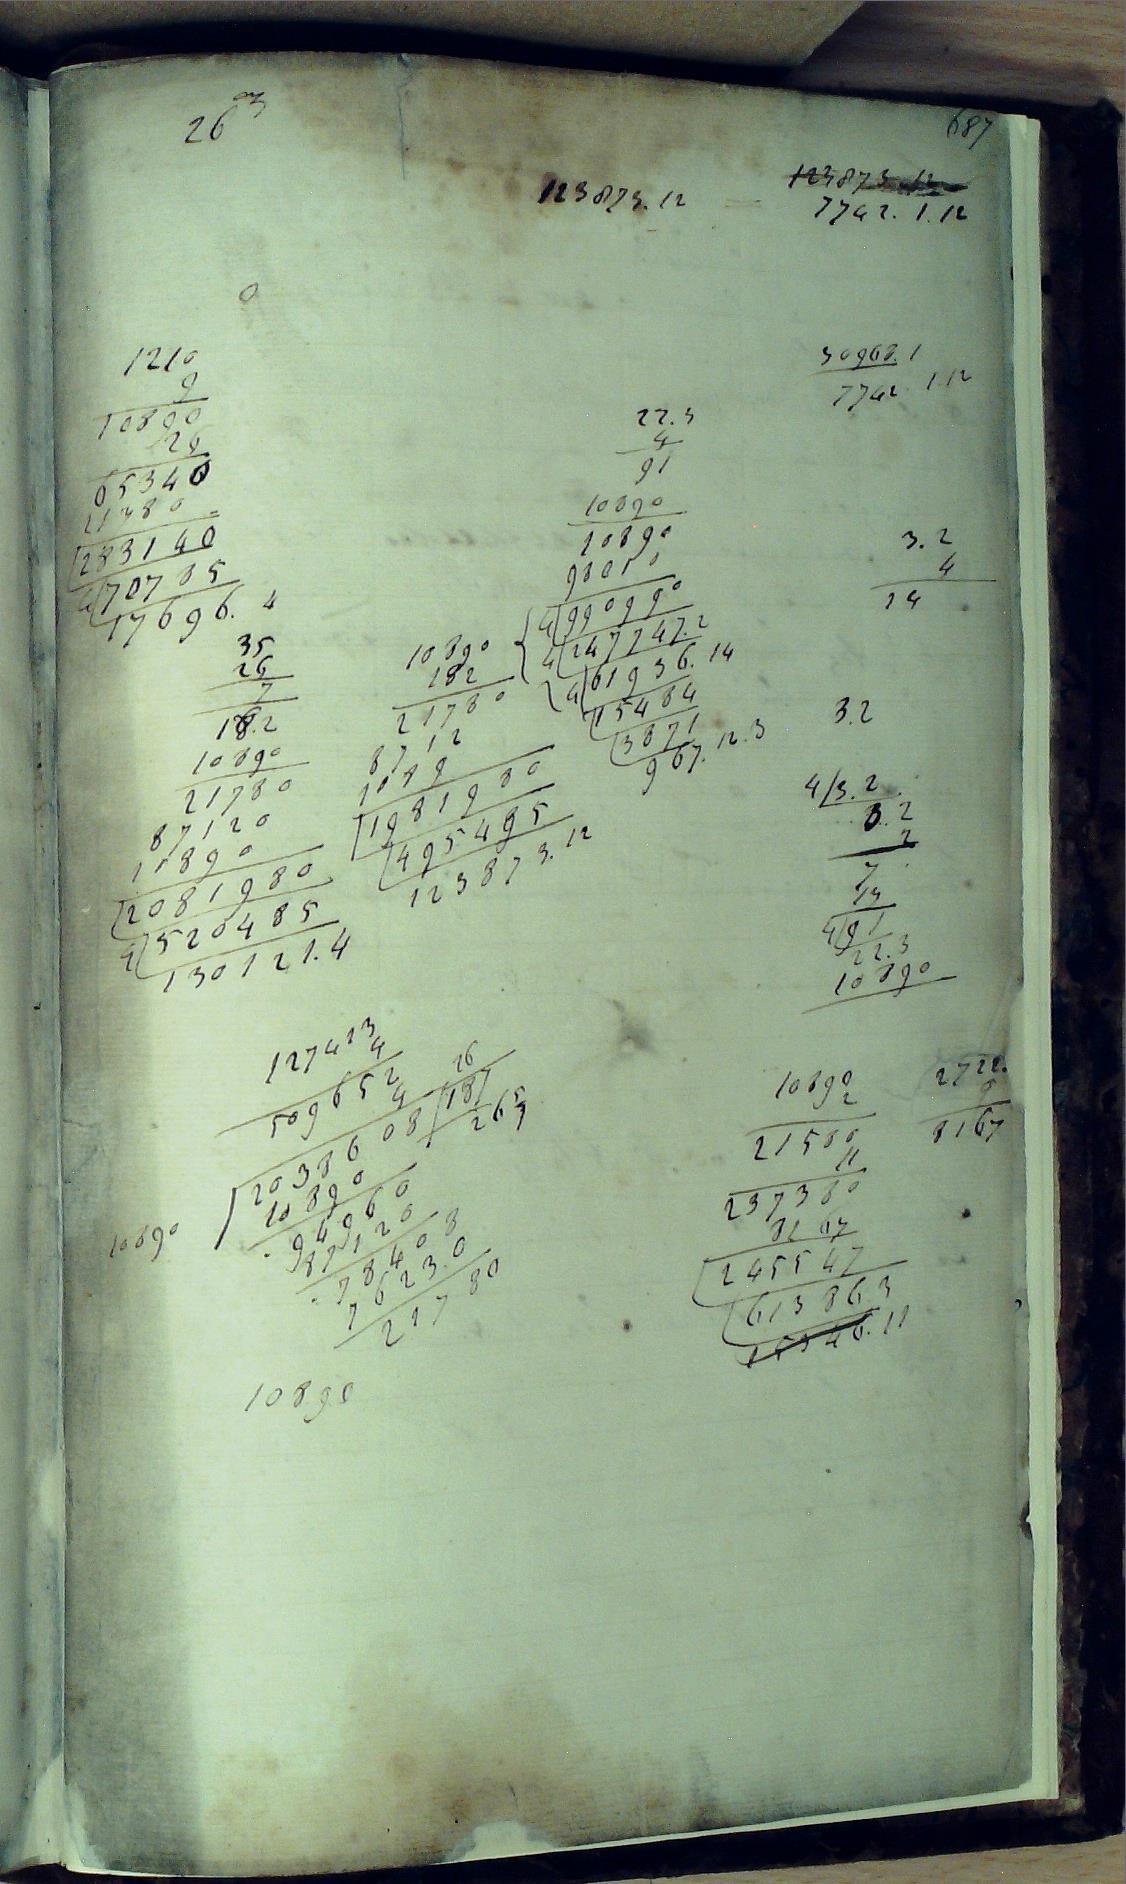 26
687
123873.12
7742.1.12
0
1210
9
10890
26
65340
21780
283140
70785
17696.4
35
26
7
18.2
10890
21780
87120
10890
2081980
4 520485
130121.4
10890
182
21780
8712
1089
1981980
495495
123873.12
22.3
4
91
10890
10890
98010
4 990990
4 247747.2
4 61936.14
15484
3871
967.12.3
30968.1
7742 1.12
3.2
4
14
3.2
4/3.2
3.2
2
7
13
4 91
22.3
10890
127423
4
509652
4
26
10890 2038608 187
265
10890
94960
87120
78408
76230
21780
10890
10890
2
21580
11
237380
8167
245547
613863
15346.11
2722.
9
8167